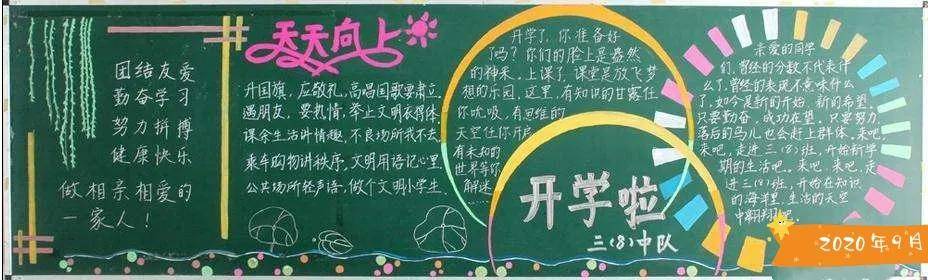 团结友爱
勤奋学习
努力拼搏
健康快乐
做相亲相爱的
一家人！
天天向上
升国旗,应敬礼,高唱国歌要肃立.
遇朋友,要热情,举止文明衣得体.
课余生活讲情趣,不良场所我不去.
乘车购物讲秩序,文明用语记心里.
公共场所轻声语,做个文明小学生.
开学了,你准备好
了吗？你们的脸上是盎然
的神采.上课了,课堂是放飞梦
想的乐园,这里,有知识的甘露任
你吮吸,有思维的
天空任你开启,
有未知的
世界等你
解迷.
开学啦
三(8)中队
亲爱的同学
们,曾经的分数不代表什
么了,曾经的表现不意味什么
了,如今是新的开始,新的希望,
只要勤奋,成功在望,只要努力,
落后的马儿也会赶上群体,来吧,
来吧,走进三(8)班,开始新学
期的生活吧,来吧,来吧,走
进三(8)班,开始在知识
的海洋里,生活的天空
中翱翔吧.
2020年9月